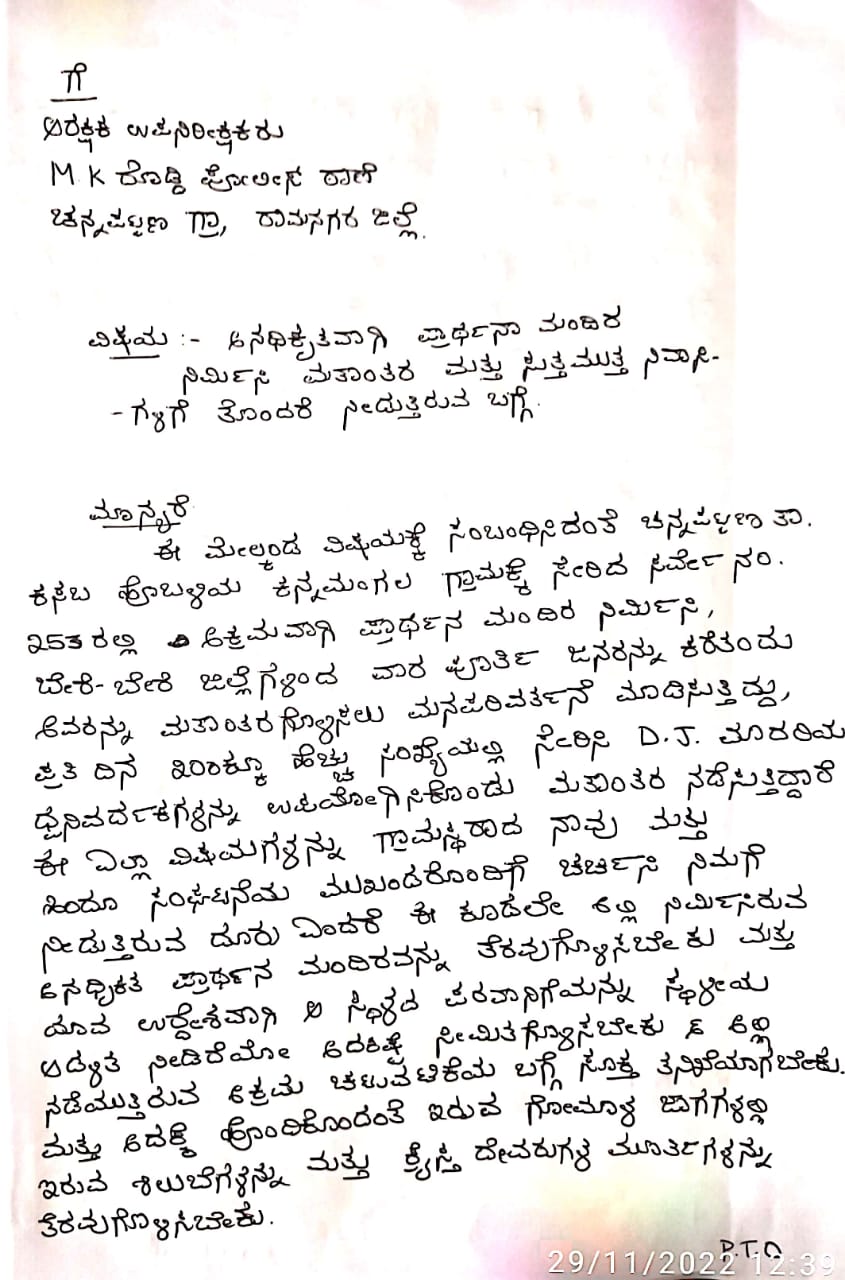 ಗೆ
ಆರಕ್ಷಕ ಉಪನಿರೀಕ್ಷಕರು
M.K ದೊಡ್ಡಿ ಪೋಲೀಸ ಠಾಣೆ
ಚನ್ನಪಟ್ಟಣ ಗ್ರಾ, ರಾಮನಗರ ಜಿಲ್ಲೆ.
ವಿಷಯ :- ಅನಧಿಕೃತವಾಗಿ ಪ್ರಾರ್ಥನಾ ಮಂದಿರ
ನಿರ್ಮಿಸಿ ಮತಾಂತರ ಮತ್ತು ಸುತ್ತಮುತ್ತ ನಿವಾಸಿ-
-ಗಳಿಗೆ ತೊಂದರೆ ನೀಡುತ್ತಿರುವ ಬಗ್ಗೆ.
ಮಾನ್ಯರೆ
ಈ ಮೇಲ್ಕಂಡ ವಿಷಯಕ್ಕೆ ಸಂಬಂಧಿಸಿದಂತೆ ಚನ್ನಪಟ್ಟಣ ತಾ.
ಕಸಬ ಹೊಬಳಿಯ ಕನ್ನಮಂಗಲ ಗ್ರಾಮಕ್ಕೆ ಸೇರಿದ ಸರ್ವೇ ನಂ.
253 ರಲ್ಲಿ ಅಕ್ರಮವಾಗಿ ಪ್ರಾರ್ಥನ ಮಂದಿರ ನಿರ್ಮಿಸಿ,
ಬೇರೆ-ಬೇರೆ ಜಿಲ್ಲೆಗಳಿಂದ ವಾರ ಪೂರ್ತಿ ಜನರನ್ನು ಕರೆತಂದು
ಅವರನ್ನು ಮತಾಂತರಗೊಳ್ಳಿಸಲು ಮನಪರಿವರ್ತನೆ ಮಾಡಿಸುತ್ತಿದ್ದು,
ಪ್ರತಿ ದಿನ ೩೦೦ಕ್ಕೂ ಹೆಚ್ಚು ಸಂಖ್ಯೆಯಲ್ಲಿ ಸೇರಿಸಿ D.J. ಮಾದರಿಯ
ಧ್ವನಿವರ್ದಕಗಳನ್ನು ಉಪಯೋಗಿಸಿಕೊಂಡು ಮತಾಂತರ ನಡೆಸುತ್ತಿದ್ದಾರೆ
ಈ ಎಲ್ಲಾ ವಿಷಮಗಳನ್ನು ಗ್ರಾಮಸ್ಥರಾದ ನಾವು ಮತ್ತು
ಹಿಂದೂ ಸಂಘಟನೆಯ ಮುಖಂಡರೊಂದಿಗೆ ಚರ್ಚಿಸಿ ನಿಮಗೆ
ನೀಡುತ್ತಿರುವ ದೂರು ಎಂದರೆ ಈ ಕೂಡಲೇ ಅಲ್ಲಿ ನಿರ್ಮಿಸಿರುವ
ಅನಧ್ರಿಕತ ಪ್ರಾರ್ಥನ ಮಂದಿರವನ್ನು ತೆರವುಗೊಳ್ಳಿಸಬೇಕು ಮತ್ತು
ಯಾವ ಉದ್ದೇಶವಾಗಿ ಆ ಸ್ಥಳದ ಪರವಾನಿಗೆಯನ್ನು ಸ್ಥಳೀಯ
ಆಡ್ಯತ ನೀಡಿದೆಯೋ ಅದಕಷ್ಟೆ ಸೀಮಿತಗೊಳಿಸಬೇಕು & ಅಲ್ಲಿ
ನಡೆಯುತ್ತಿರುವ ಅಕ್ರಮ ಚಟುವಟಿಕೆಯ ಬಗ್ಗೆ ಸೂಕ್ತ ತನಿಖೆಯಾಗಬೇಕು.
ಮತ್ತು ಅದಕ್ಕೆ ಹೊಂದಿಕೊಂರಂತೆ ಇರುವ ಗೋಮಾಳ ಜಾಗಗಳಲ್ಲಿ
ಇರುವ ಶಿಲುಬೆಗಳನ್ನು ಮತ್ತು ಕ್ರೈಸ್ತ ದೇವರುಗಳ ಮೂರ್ತಿಗಳನ್ನು
ತೆರವುಗೊಳಿಸಬೇಕು.
P.T.O
29/11/2022 12:39